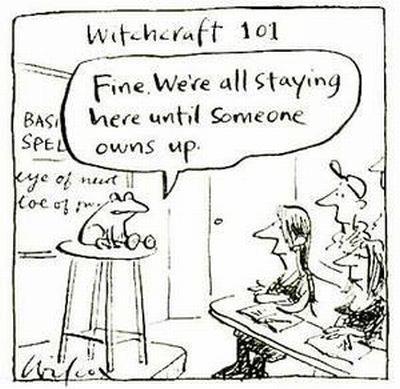 Witchcraft 101
Fine. We're all staying
here until someone
owns up.
BASI
SPEL
eye of newt
toe of
Wilcox